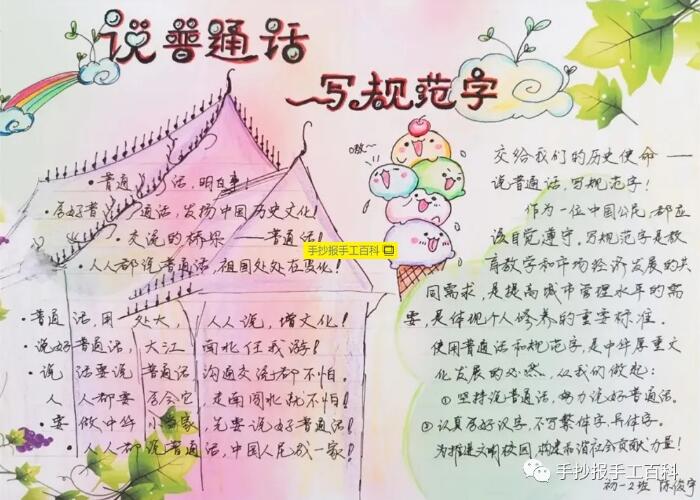 说普通话
写规范字
嗷~
手抄报手工百科
·普通话,明白事!
·学好普通话,发扬中国历史文化!
·交流的桥梁——普通话!
·人人都说普通话,祖国处处在变化!
·普通话,用处大,人人说,增文化!
·说好普通话,大江南北任我游!
·说话要说普通话沟通交流都不怕.
人人都要学会它,走南闯北就不怕!
·要做中华小当家,先要说好普通话!
·人人都说普通话,中国人民成一家!
交给我们的历史使命——
说普通话,写规范字!
作为一位中国公民,都应
该自觉遵守,写规范字是教
育教学和市场经济发展的共
同需求,是提高城市管理水平的需
要,是体现个人修养的重要标准.
使用普通话和规范字,是中华厚重文
化发展的必然,从我们做起:
①坚持说普通话,努力说好普通话。
②认真写好汉字,不写繁体字,异体字。
为推进文明校园,构建和谐社会贡献力量!
初一2班 陈俊宇
手抄报手工百科